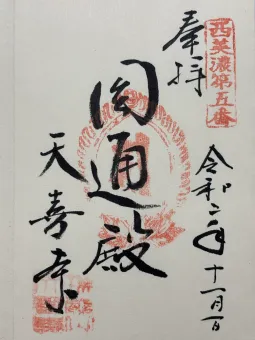 西美濃第五番
奉拝
令和二年十一月一日
圓通殿
天喜寺